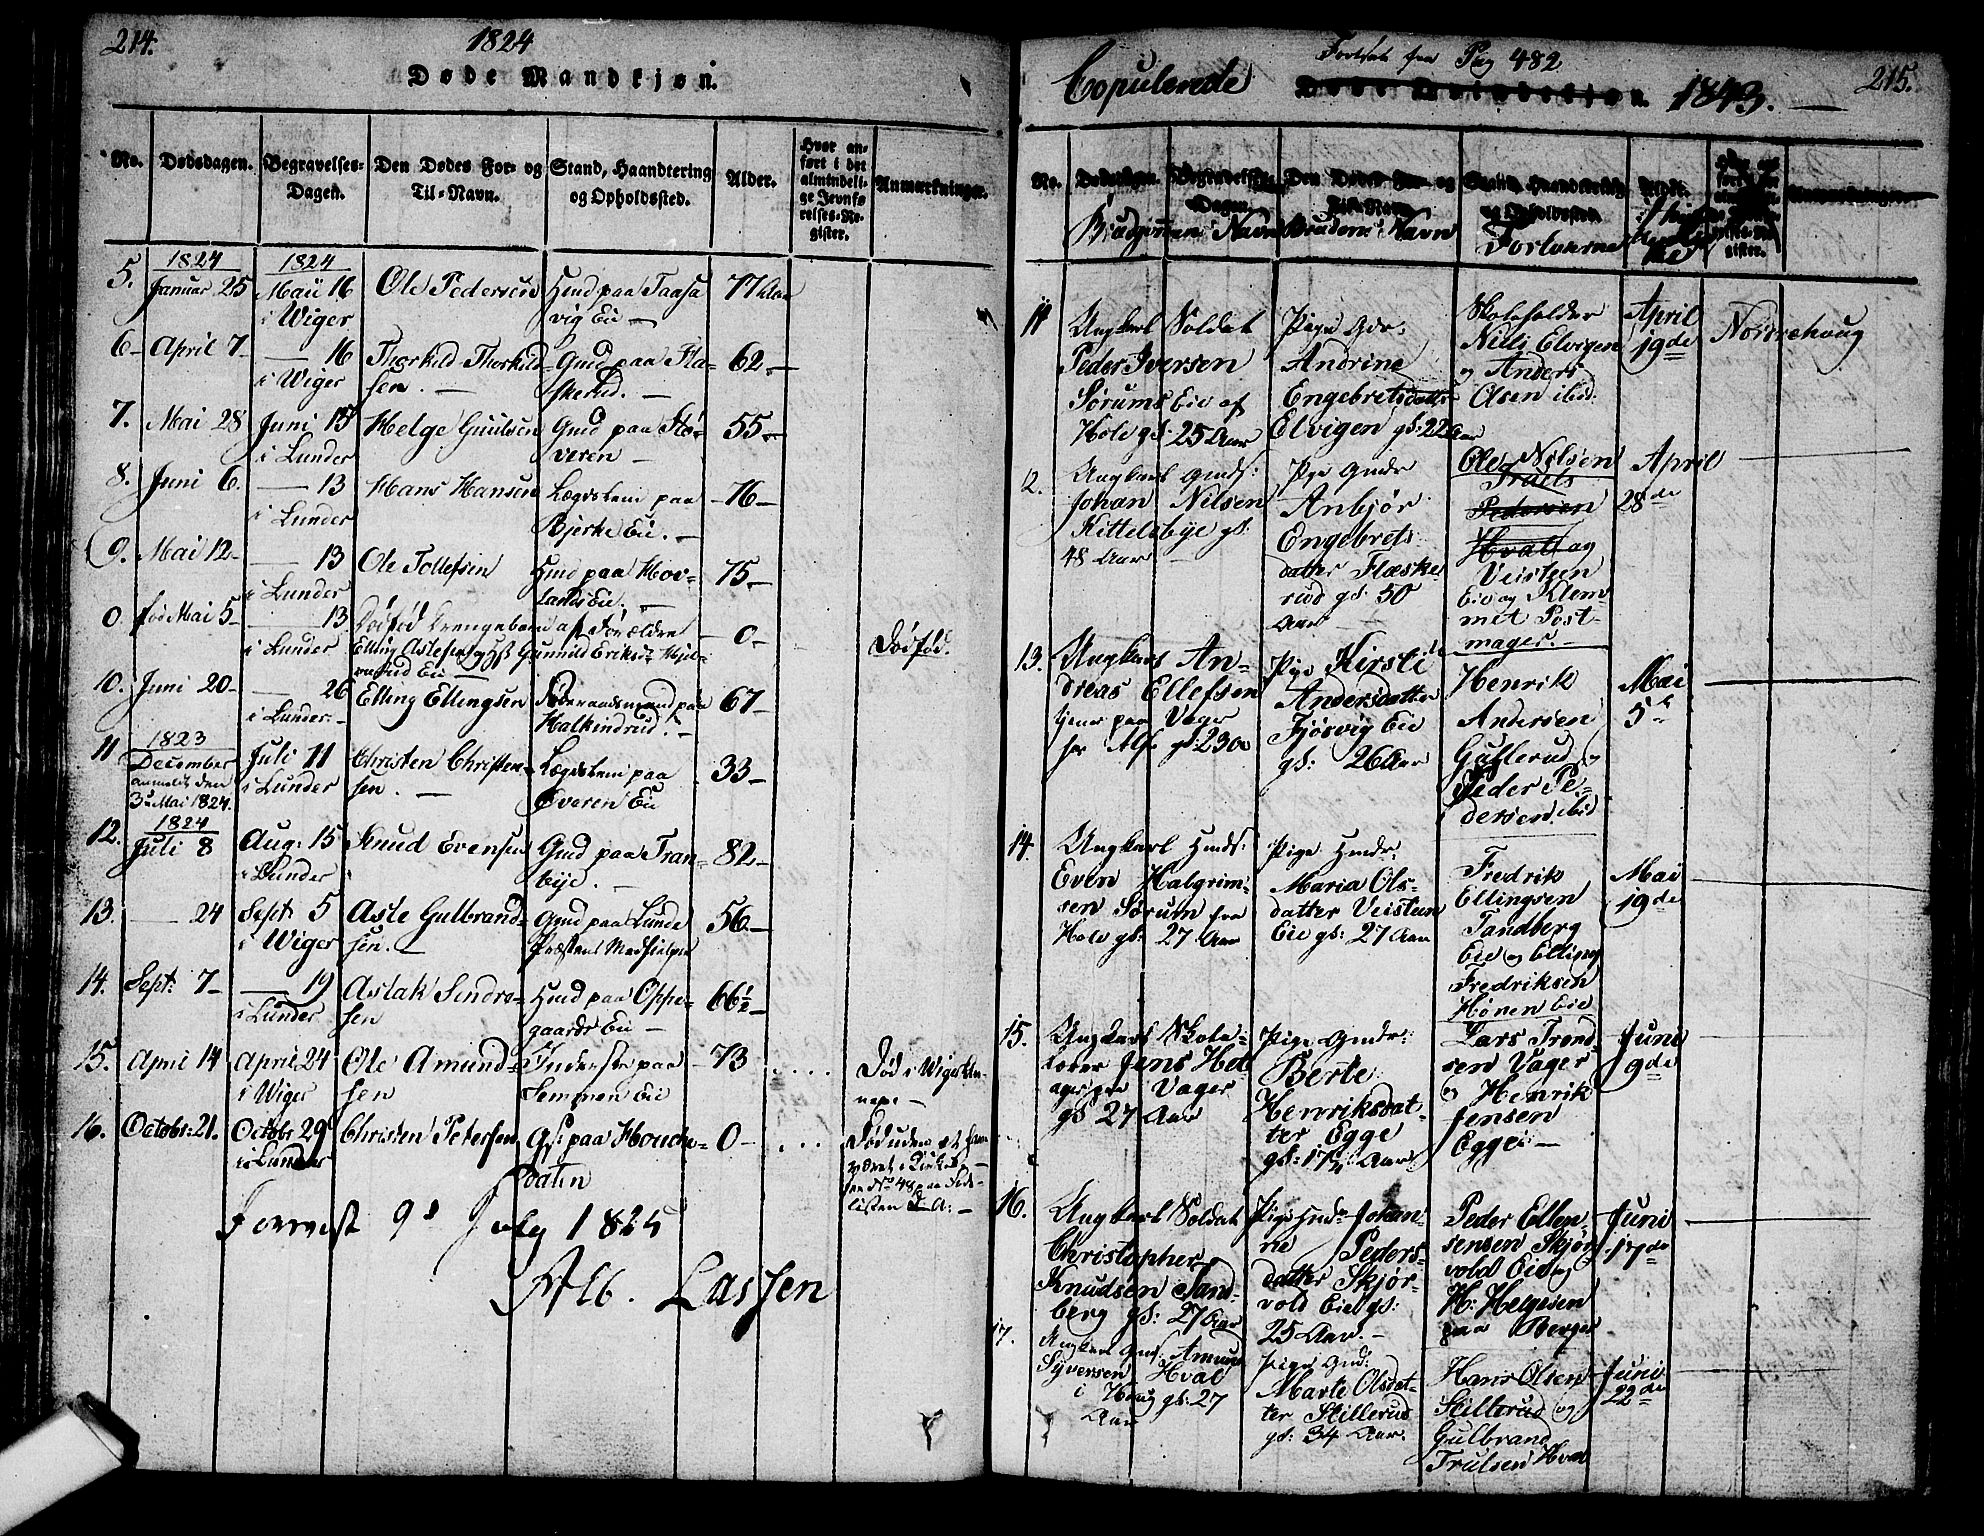 214.
1824
Døde Mandkjøn.
No. Dødsdagen. Begravelses-Dagen. Den Dødes For- og Til-Navn. Stand, Haandtering og Opholdssted. Alder. Hvor anført i det almindelige Jevnførelses-Register. Anmærkninger.
5. 1824 Januar 25 1824 Maii 16 i Wiger Ole Pedersen Hmd paa Taasavig Eie 77 Aar
6 April 7 — 16 i Wiger Thorkild Thorkildsen. Gmd paa Flaskerud. 62
7. Mai 28 Juni 13 i Lunder Helge Guulsen Gmd paa Støveren 55
8. Juni 6. — 13 i Lunder Hans Hansen Lægdslem paa Bjerke Eie. 76
9. Mai 12 — 13 i Lunder Ole Tollefsen Hmd paa Hovlands Eie. 75
0. fød Mai 5 — 13 i Lunder Dødfød Drengebarn af Forældre Elling Aslesen og H. Gunnild Eriksd: Eie 0 Dødfød.
10. Juni 20 — 26 i Lunder Elling Ellingsen Føderaadsmand paa Halkindrud. 67
11 1823 December anmeldt den 3 Mai 1824. Juli 11 i Lunder Christen Christensen. Lægdslem paa Eie 33
12. 1824 Juli 8 Aug: 15 i Lunder Knud Evensen Gmd paa Tranbye. 82
13. — 24 Sept: 5 i Wiger Asle Gulbrandsen. Gmd paa Lunde Præstens Medhjelper 56
14. Sept: 7 — 19 i Lunder Aslak Sendresen Hmd paa Oppegaards Eie 66½
15. April 14 April 24 i Wiger Ole Amundsen Inderste paa Semmen Eie 73 Død i Wiger
16. Octobr: 21. Octobr 29 i Lunder Christen Petersen Gf: paa 0 Død uden at have været i Kirken No 48 paa
Forevist 9 July 1825
Alb. Lassen
215.
Copulerede Fortsat fra Pag 482 1843.
Døde Qvindekjøn.
No. Dødsdagen. Begravelses-Dagen. Den Dødes For- og Til-Navn. Stand, Haandtering og Opholdssted.
Brudgommens Navn Brudens Navn Forloverne
11 Ungkarl Soldat Peder Iversen Sørums Eie af Hole gl: 25 Aar Pige Gdr: Andrine Engebretsdatter Elvigen gl: 22 Aar Skoleholder Niels Elvigen og Anders Olsen ibid: April 19de Norrehoug
12. Ungkarl Gmds: Johan Nilsen Kittelsbye gl: 48 Aar Pige Gmdr Anbjør Engebretsdatter Flæskerud gl: 50 Aar Ole Nilsen Truels Pedersen Hval og Veisteen Eie og Klemmet Postmager. April 28de
13. Ungkarl Andreas Ellefsen tjener paa Vager gl: 23 Aar Pige Kirsti Andersdatter Fjøsvig Eie gl: 26 Aar Henrik Andersen Gullerud og Peder Pedersen ibid Mai 5te
14. Ungkarl Hmds: Even Halgrimsen Sørum fra Hole gl: 27 Aar Pige Hmdr: Maria Olsdatter Veisteen Eie gl: 27 Aar Fredrik Ellingsen Tandberg Eie og Elling Fredriksen Hønen Eie Mai 19de
15. Ungkarl Skolelærer Jens Vager gl: 27 Aar Pige Gmdr: Berte Henriksdatter Egge gl: 17¾ Aar Lars Trondsen Vager og Henrik Jensen Egge: Juni 9de
16. Ungkarl Soldat Christopher Knudsen Sandberg gl: 27 Aar Pige Hmdr Johanne Pedersdatter Skjørvold Eie gl: 25 Aar. Peder Ellensen Skjørvold Eie og H: Helgesen paa Berger Juni 17de
17. Ungkarl Gmd: Amund Syversen Hval i Houg gl: 27 Aar Pige Gmd: Marte Olsdatter Hillerud gl: 34 Aar. Hans Olsen Hillerud og Gulbrand Trulsen Hval Juni 22de